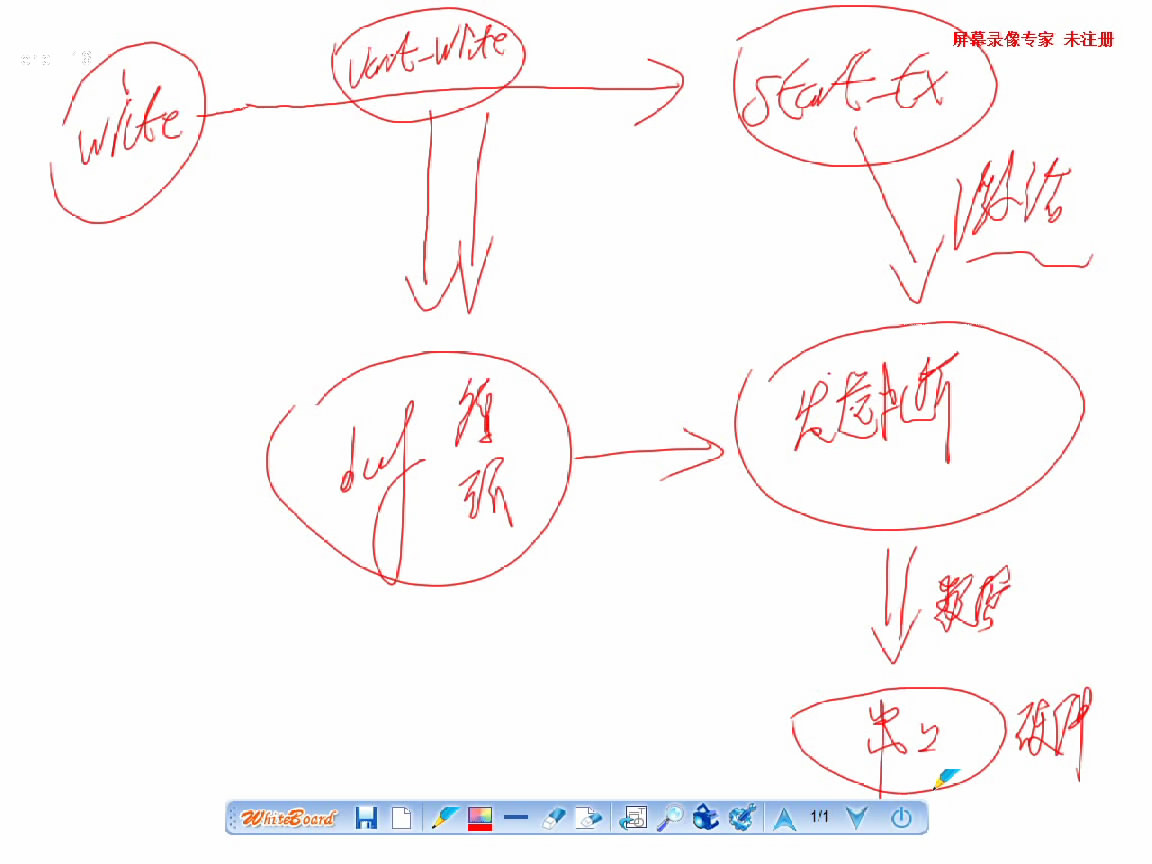 屏幕录像专家 未注册
write
uart-write
start-tx
激活
buf 缓
发送中断
数据
串口 硬件
WhiteBoard
1/1